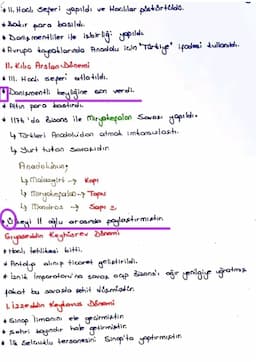 * II. Haçlı Seferi yapıldı ve Haçlılar püskürtüldü.
* Bakır para basıldı.
* Danişmentliler ile işbirliği yapıldı
* Avrupa kaynaklarında Anadolu için "Türkiye" ifadesi kullanıldı.
II. Kılıç Arslan Dönemi
* III. Haçlı Seferi atlatıldı.
* Danişmentli beyliğine son verdi.
* Altın para bastırdı.
* 1176 'da Bizans ile Miryokefalon Savaşı yapıldı.
↳ Türkleri Anadolu'dan atmak imkansızlaştı.
↳ Yurt tutan savaşıdır
Anadolunun;
↳ Malazgirt → Kapı
↳ Miryokefalon → Tapu
↳ Mondros →
* Ülkeyi 11 oğlu arasında paylaştırmıştır.
Gıyaseddin Keyhüsrev Dönemi
* Haçlı tehlikesi bitti.
* Antalya alınıp ticaret geliştirildi.
* İznik İmparatoru'na savaş açıp Bizans'ı ağır yenilgiye uğratmış
fakat bu savaşta şehit düşmüştür.
I. İzzeddin Keykavus Dönemi
* Sinop limanını ele geçirmiştir
* Şehri bayındır hale getirmiştir.
* İlk Selçuklu tersanesini Sinop'ta yaptırmıştır.